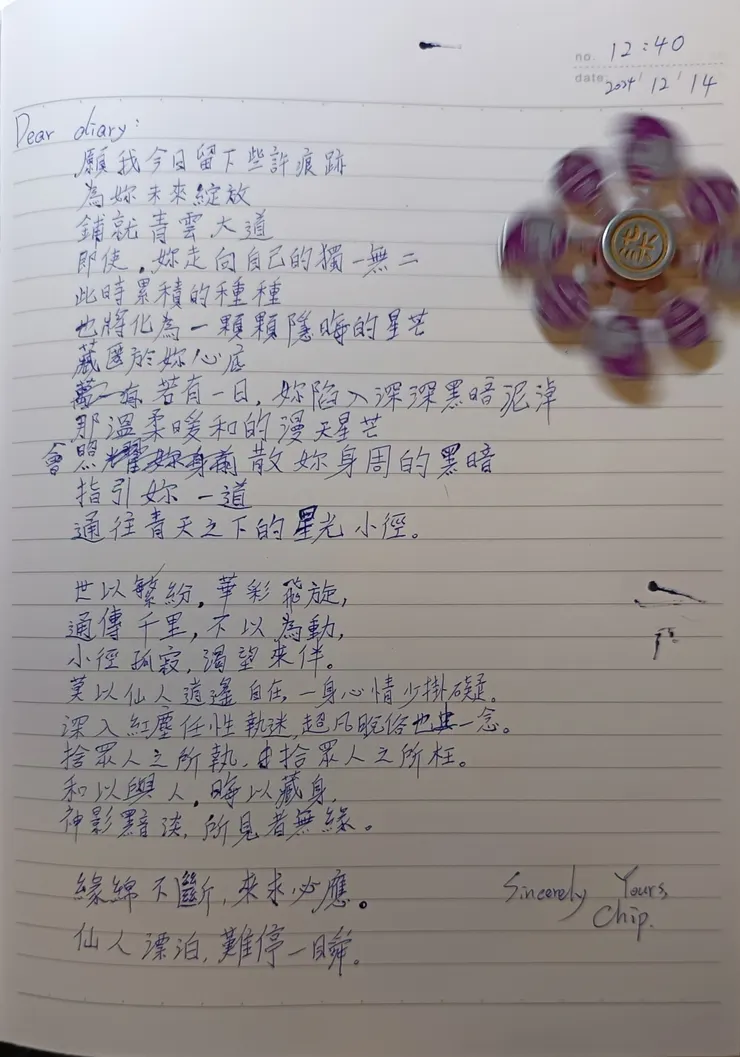 no. 12:40
date: 2024/12/14
Dear diary:
願我今日留下些許痕跡
為妳未來綻放
鋪就青雲大道
即使,妳走向自己的獨一無二
此時累積的種種
也將化為一顆顆隱晦的星芒
藏匿於妳心底
若有一日,妳陷入深深黑暗泥淖
那溫柔暖和的漫天星芒
會照散妳身周的黑暗
指引妳一道
通往青天之下的星光小徑。
世以繁紛,華彩飛旋,
通傳千里,不以為動,
小徑孤寂,渴望來伴。
莫以仙人逍遙自在,一身心情少掛礙。
深入紅塵任性執迷,超凡脫俗也一念。
捨眾人之所執,拾眾人之所枉。
和以與人,晦以藏身,
神影黯淡,所見者無緣。
緣綿不斷,來求必應。
仙人漂泊,難停一瞬。
Sincerely Yours,
Chip.